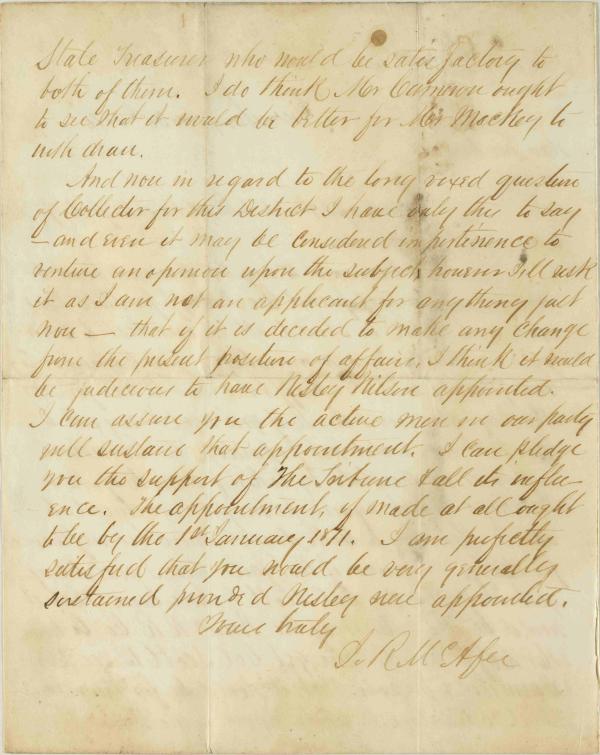 State Treasurer who would be satisfactory to
both of them. I do think Mr Cameron ought
to see that it would be better for Mr Mackey to
with draw.
And now in regard to the long vexed question
of Collector for this District I have only this to say
— and even it may be considered impertinence to
venture an openion upon the subject, however I'll risk
it as I am not an applicant for anything just
now — that if it is decided to make any change
from the present position of affairs, I think it would
be judicious to have Nisley Wilson appointed.
I can assure you the active men in our party
will sustain that appointment. I can pledge
you the support of The Tribune & all its influ-
ence. The appointment, if made at all ought
to be by the 1st January 1871. I am perfectly
satisfied that you would be very generally
sustained provided Nisley were appointed.
Yours truly
J. R. McAfee